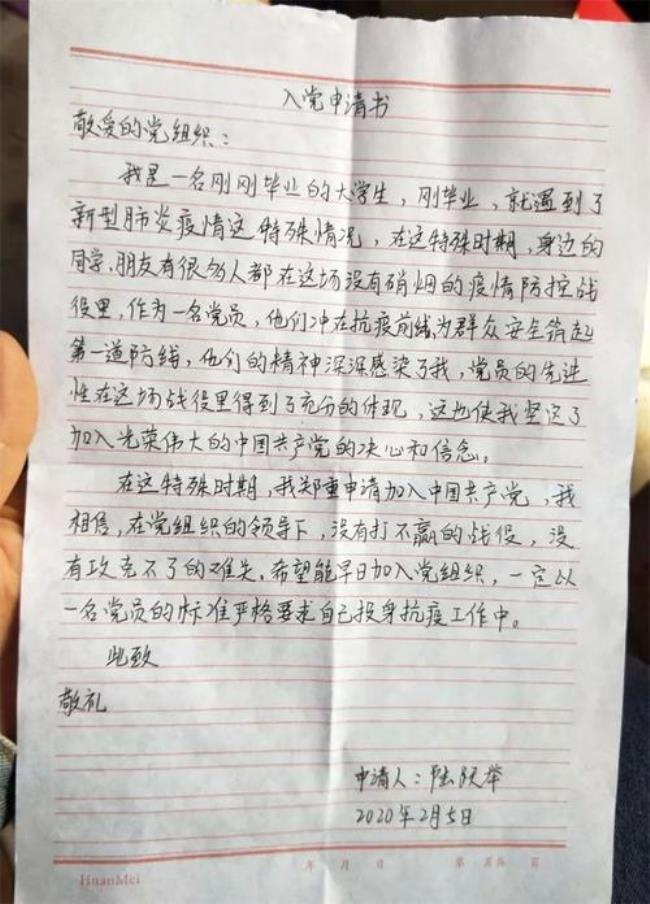 入党申请书
敬爱的党组织：
我是一名刚刚毕业的大学生，刚毕业，就遇到了
新型肺炎疫情这特殊情况，在这特殊时期，身边的
同学、朋友有很多人都在这场没有硝烟的疫情防控战
役里，作为一名党员，他们冲在抗疫前线，为群众安全筑起
第一道防线，他们的精神深深感染了我，党员的先进
性在这场战役里得到了充分的体现，这也使我坚定了
加入光荣伟大的中国共产党的决心和信念。
在这特殊时期，我郑重申请加入中国共产党，我
相信，在党组织的领导下，没有打不赢的战役，没
有攻克不了的难关。希望能早日加入党组织，一定以
一名党员的标准严格要求自己投身抗疫工作中。
此致
敬礼
申请人：陆
2020年2月5日
年 月 日 第 页
HuanMei